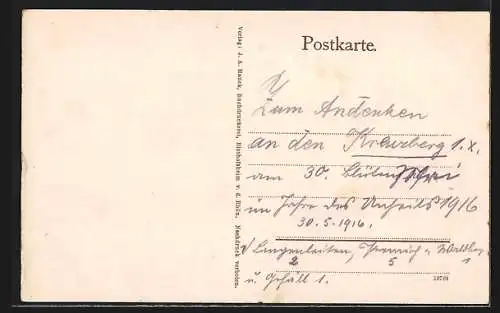 Postkarte.
Verlag: J. A. Hauck, Buchdruckerei, Bischofsheim v. d. Rhön. Nachdruck verboten.
Zum Andenken
an den Kreuzberg 1. x.
am 30.
im Jahre des Unheils 1916
30.5.1916.
Langenleiten,
2 5 1
u. Gefäll 1.